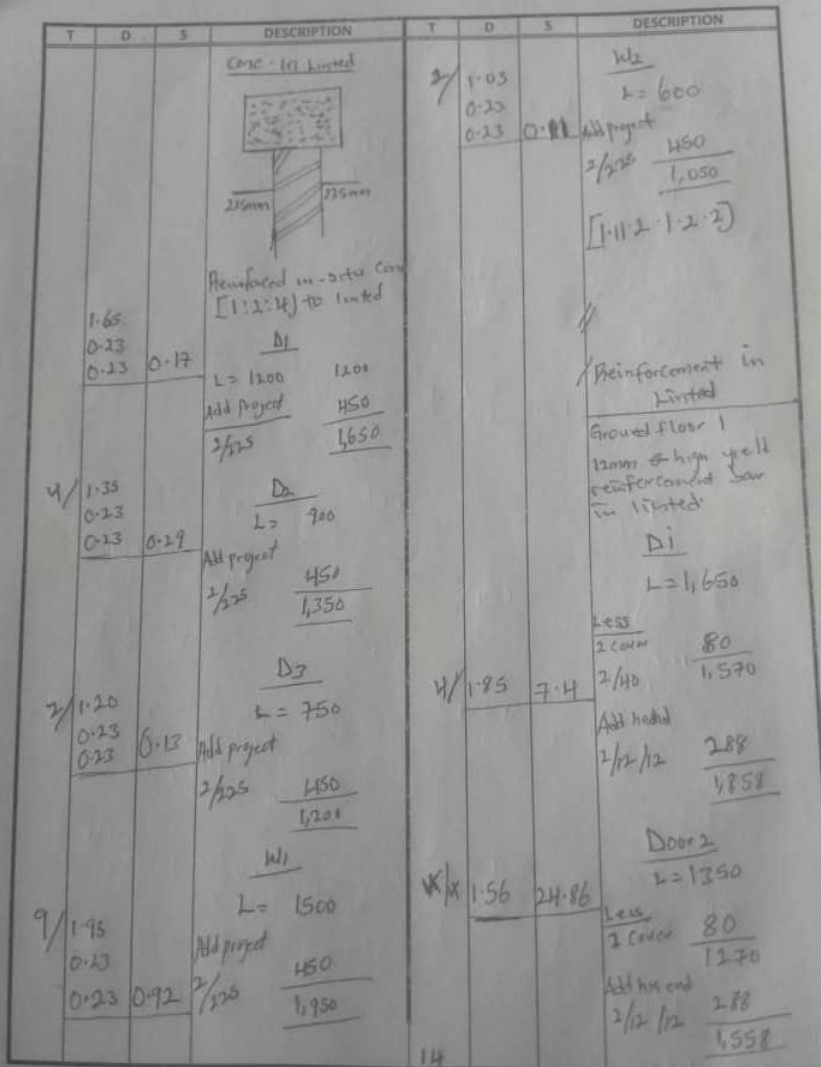 T D S DESCRIPTION
Conc. In Linted
225mm 225mm
Reinforced in-situ Conc
[1:2:4] to linted
1.65
0.23
0.23 0.17
D1
L= 1200 1200
Add Project 450
2/225 1,650
4/ 1.35
0.23
0.23 0.29
D2
L= 900
Add project
2/225 450
1,350
2/ 1.20
0.23
0.23 0.13
D3
L= 750
Add project
2/225 450
1,200
W1
L= 1500
9/ 1.95
0.23
0.23 0.92
Add project
2/225 450
1,950
T D S DESCRIPTION
2/ 1.05
0.23
0.23 0.11
W2
L= 600
Add project
2/225 450
1,050
[1.11.2.1.2.2]
//
Reinforcement in
Linted
Ground floor 1
12mm high yiell
reinforcement bar
in linted
D1
L=1,650
Less
2 cover 80
2/40 1,570
4/ 1.85 7.4
Add
2/12/12 288
1,858
Door 2
L=1350
1.56 24.86
Less
2 Cover 80
1270
Add his end
2/12/12 288
1,558
14